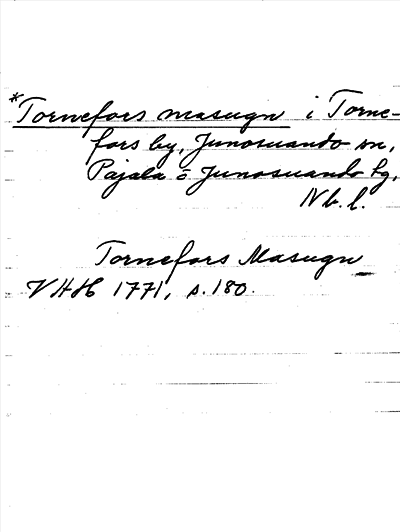 *Tornefors masugn i Torne-
fors by, Junosuando sn,
Pajala o Junosuando tg,
Nb. l.
Tornefors Masugn
VHH 1771, s. 180.